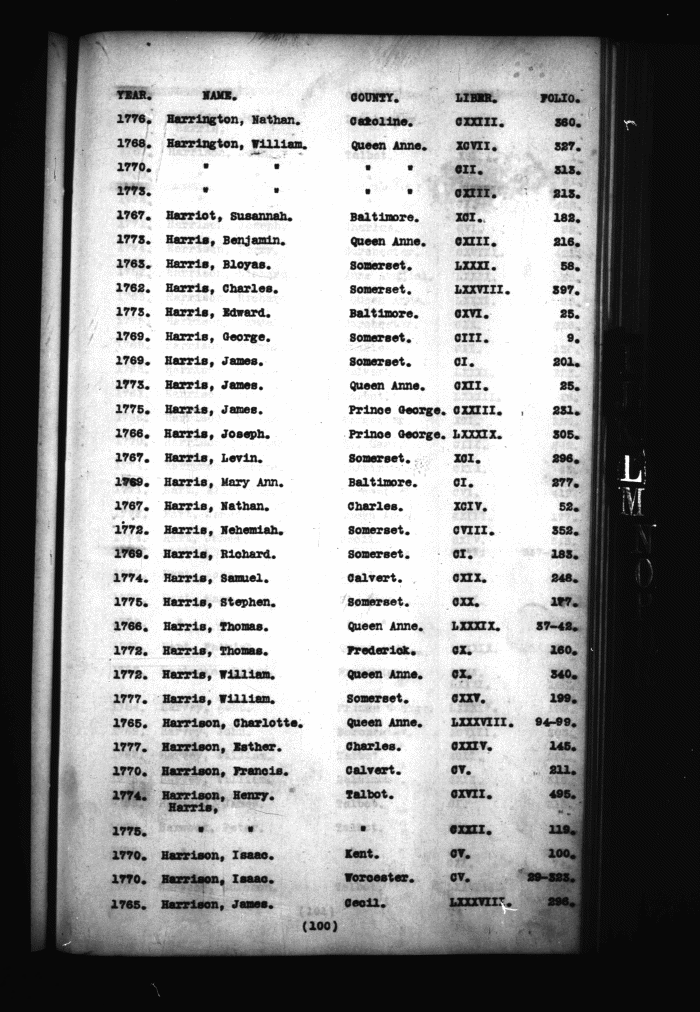 YEAR. NAME. COUNTY. LIBER. FOLIO.
1776. Harrington, Nathan. Caroline. CXXIII. 360.
1768. Harrington, William. Queen Anne. XCVII. 327.
1770. " " " " CII. 313.
1773. " " " " CXIII. 213.
1767. Harriot, Susannah. Baltimore. XCI. 182.
1773. Harris, Benjamin. Queen Anne. CXIII. 216.
1763. Harris, Bloyas. Somerset. LXXXI. 58.
1762. Harris, Charles. Somerset. LXXVIII. 397.
1773. Harris, Edward. Baltimore. CXVI. 25.
1769. Harris, George. Somerset. CIII. 9.
1769. Harris, James. Somerset. CI. 201.
1773. Harris, James. Queen Anne. CXII. 25.
1775. Harris, James. Prince George. CXXIII. 231.
1766. Harris, Joseph. Prince George. LXXXIX. 305.
1767. Harris, Levin. Somerset. XCI. 296.
1769. Harris, Mary Ann. Baltimore. CI. 277.
1767. Harris, Nathan. Charles. XCIV. 52.
1772. Harris, Nehemiah. Somerset. CVIII. 352.
1769. Harris, Richard. Somerset. CI. 183.
1774. Harris, Samuel. Calvert. CXIX. 248.
1775. Harris, Stephen. Somerset. CXX. 177.
1766. Harris, Thomas. Queen Anne. LXXXIX. 37-42.
1772. Harris, Thomas. Frederick. CX. 160.
1772. Harris, William. Queen Anne. CX. 340.
1777. Harris, William. Somerset. CXXV. 199.
1765. Harrison, Charlotte. Queen Anne. LXXXVIII. 94-99.
1777. Harrison, Esther. Charles. CXXIV. 145.
1770. Harrison, Francis. Calvert. CV. 211.
1774. Harrison, Henry. Talbot. CXVII. 495.
Harris,
1775. " " " CXXII. 119.
1770. Harrison, Isaac. Kent. CV. 100.
1770. Harrison, Isaac. Worcester. CV. 29-323.
1765. Harrison, James. Cecil. LXXXVIII. 296.
(100)
L
M
N
O